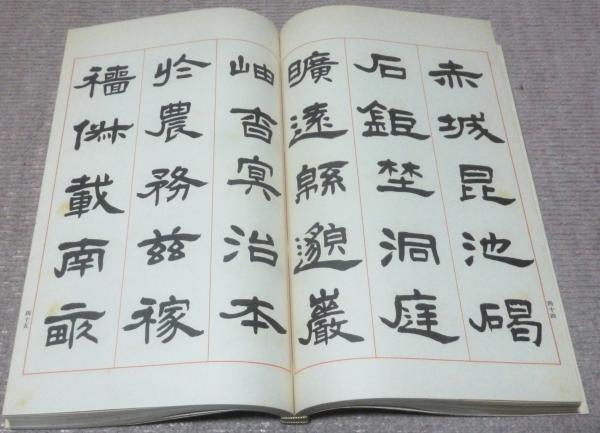 赤城昆池碣
石鉅埜洞庭
曠遠緜邈巖
四十四
岫杳冥治本
於農務茲稼
穡俶載南畝
四十五